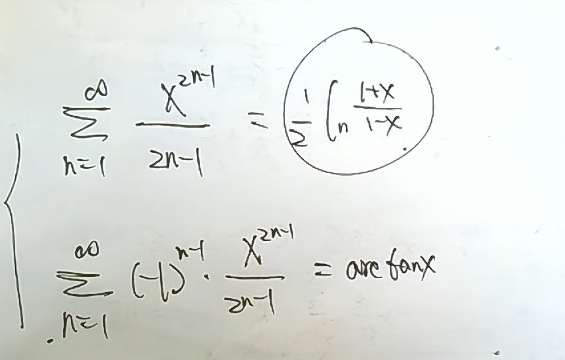 \sum_{n=1}^{\infty} \frac{x^{2n-1}}{2n-1} = \frac{1}{2} \ln \frac{1+x}{1-x}
\sum_{n=1}^{\infty} (-1)^{n-1} \cdot \frac{x^{2n-1}}{2n-1} = arctanx